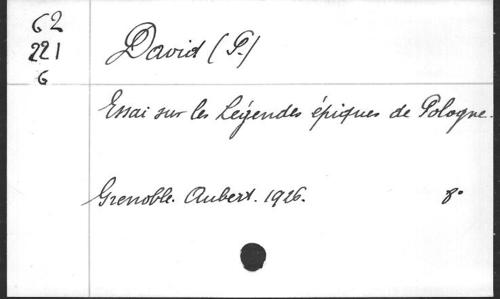 62
221
6
David (P.)
Essai sur les Légendes épiques de Pologne.
Grenoble. Aubert. 1926. 8°